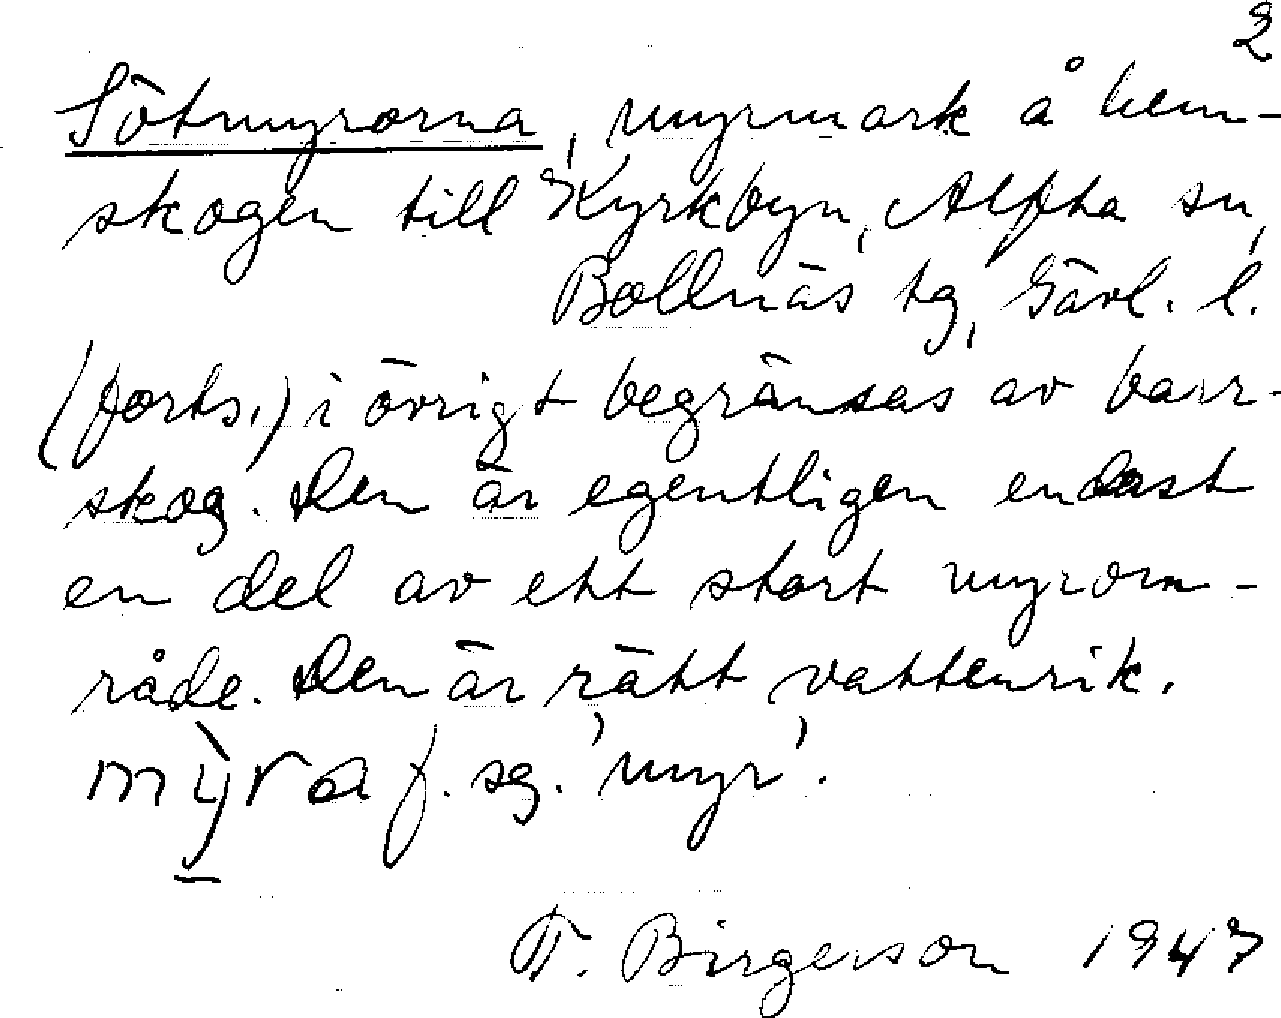 2
Sötmyrorna, myrmark å hem-
skogen till Kyrkbyn, Alfta sn,
Bollnäs tg, Gävl. l.
(forts.) i övrigt begränsas av barr-
skog. Den är egentligen endast
en del av ett stort myrom-
råde. Den är rätt vattenrik.
mỳra f. sg. 'myr'.
F. Birgerson 1947